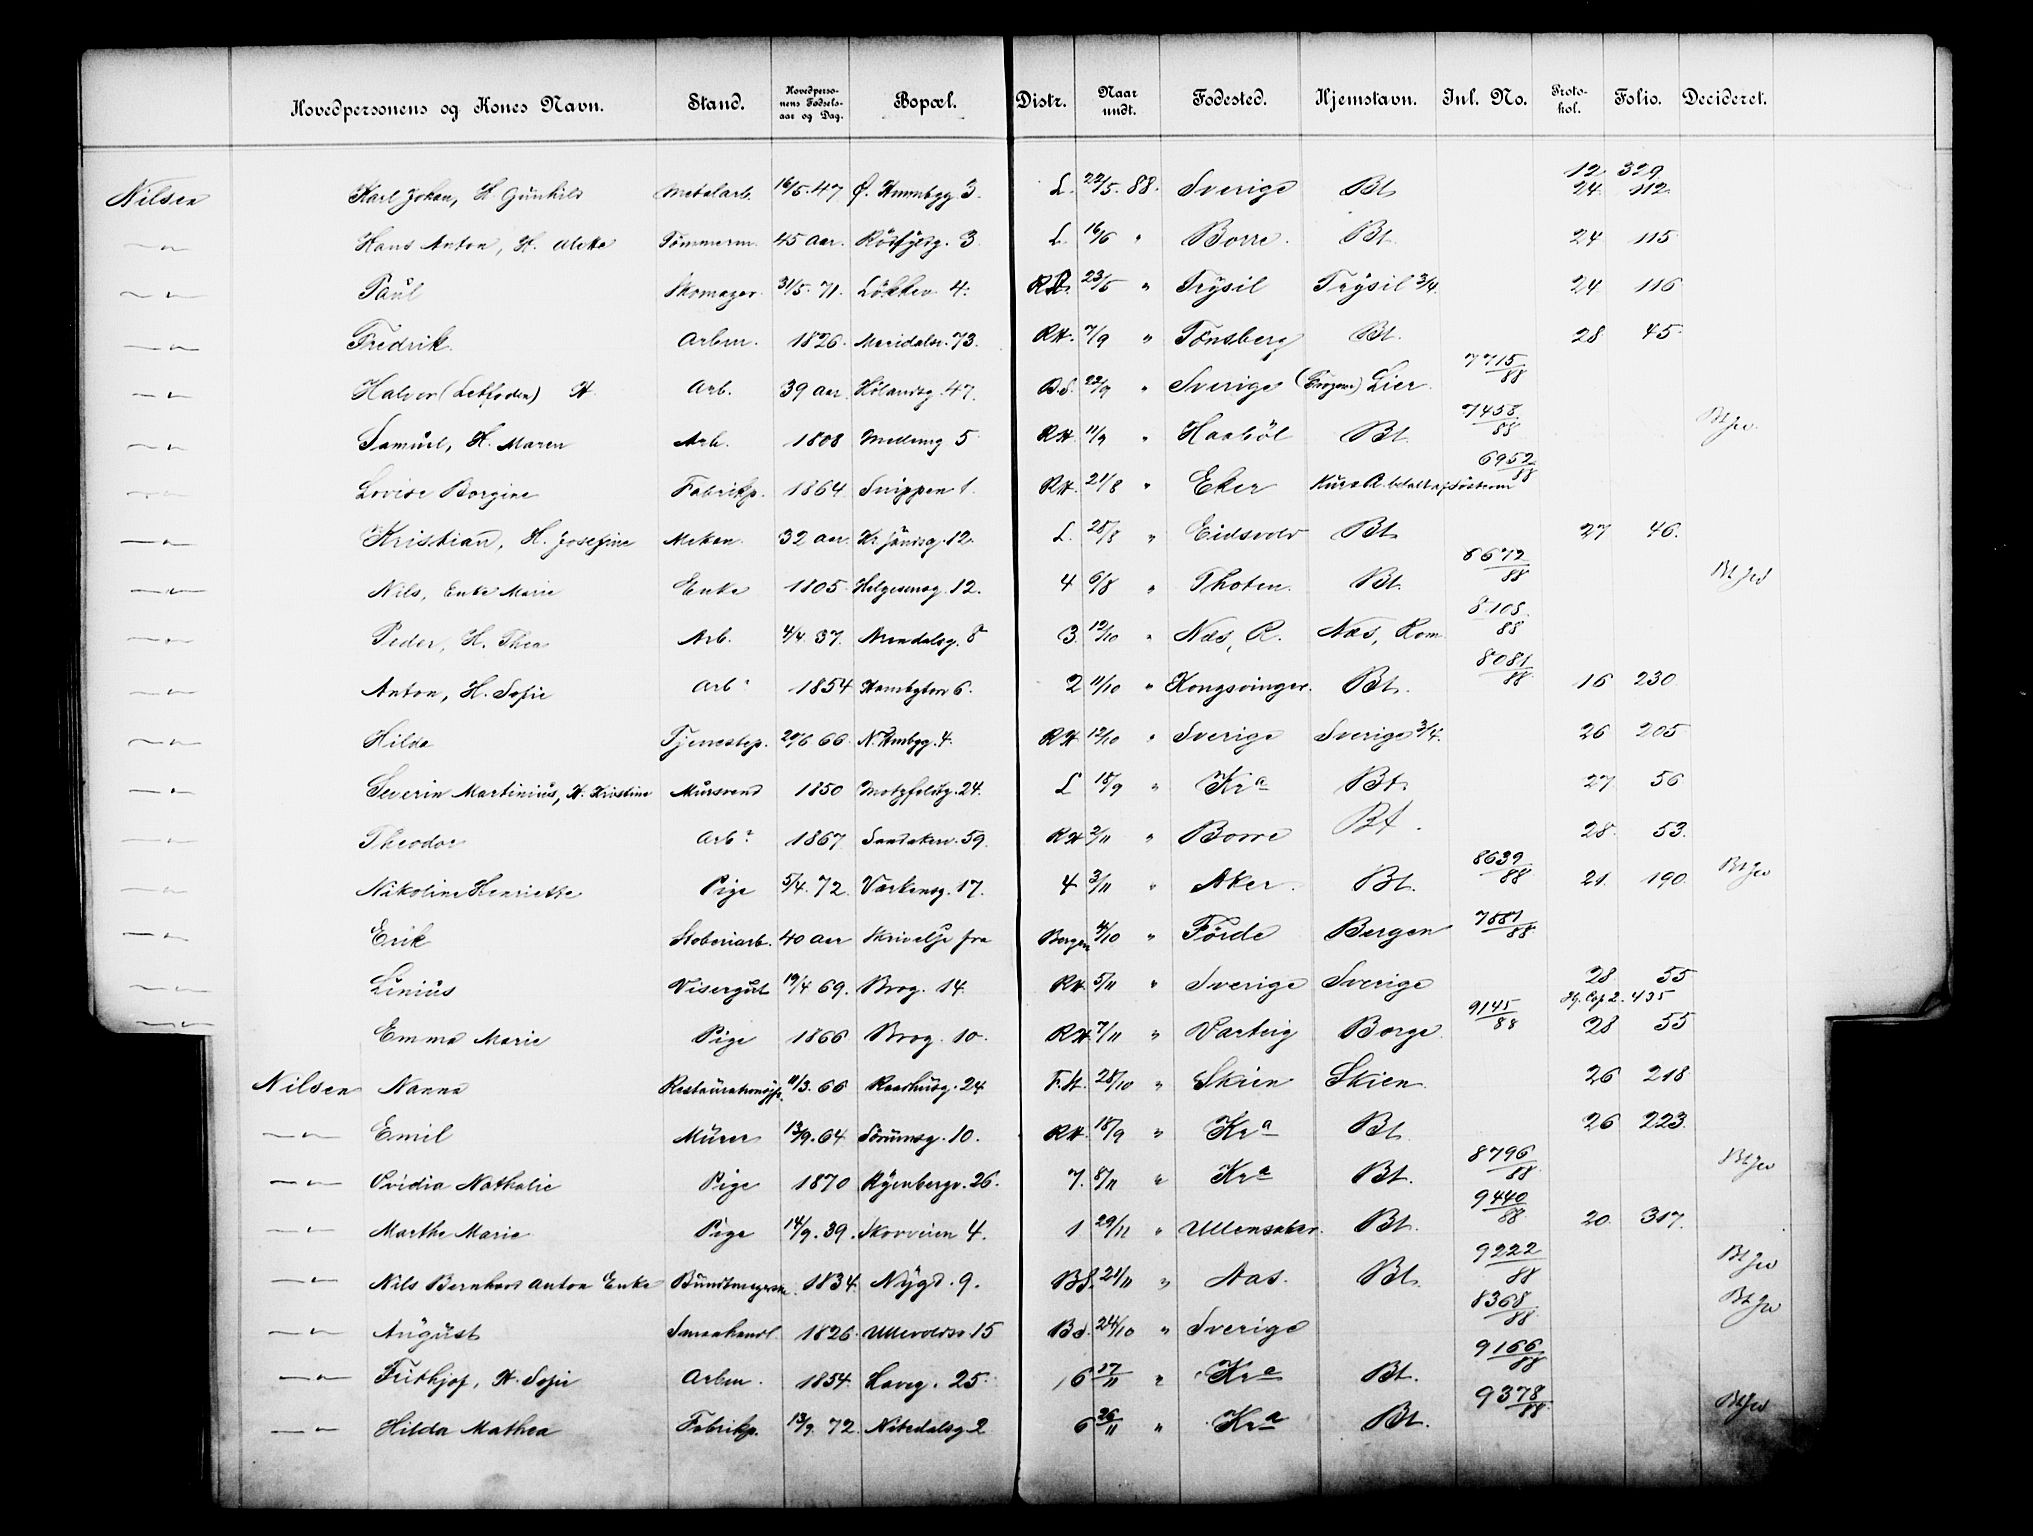 Hovedpersonens og Kones Navn. Stand. Hovedperso-nens Fødsels-aar og Dag. Bopæl. Distr. Naar undt. Fødested. Hjemstavn. Inl. No. Proto-kol. Folio. Decideret.
12 329
Nilsen Karl Johan, H. Gunhild Metalarb. 16/5.47 Ø. 3. L. 22/5. 88. Sverige Bt 24. 112
—"— Hans Anton, H. Tømmerm. 45 aar. 3 L. 16/6 " Borre. Bt. 24 115
—"— Paul Skomager. 31/5.71. Løkkev. 4. 23/5 " Trysil Trysil 3/4. 24 116
—"— Fredrik. Arbm. 1826. Maridalsv. 73. RH. 7/9 " Tønsberg Bt. 28 45
—"— Halvor H. Arb. 39 aar. Hølandsg. 47. B.S. 22/9 " Sverige Lier. 7715/88
—"— Samuel, H. Maren Arb. 1808 5 RH. 11/9 " Haabøl Bt. 7458/88
—"— Lovise Borgine Fabrikp. 1864 Snippen 1. RH. 21/8 " Eker 6952/88
—"— Kristian, H. Josefine Mekan. 32 aar. 12. L. 28/8 " Eidsvold Bt 27 46.
—"— Nils, Enke Marie Enke 1805. Helgesensg. 12. 4 6/8 " Thoten. Bt. 6672/88
—"— Peder, H. Thea Arb. 4/4. 37. Arendalsg. 8 3. 12/10 " Næs, R. Næs, Rom. 8108/88
—"— Anton, H. Sofie Arbr 1854 6. 2 11/10 " Kongsvinger. Bt. 8081/88 16 230
—"— Hilda Tjenestep. 66. 4. RH 12/10 " Sverige Sverige 3/4. 26 205
—"— Severin Martinius, H. Kristine Mursvend 1850 Motzfeldtsg. 24. L 18/9 " Kra Bt. 27. 56
—"— Theodor Arbr. 1867. Sandakerv. 59. RH 2/11 " Borre Bt. 28. 53.
—"— Nikoline Henriette Pige 5/4. 72. Verkensg. 17. 4 3/11 " Aker. Bt. 8639/88 21. 190
—"— Erik 40 aar Skrivelse fra Bergen 4/10 " Førde Bergen
—"— Linius Visergut 19/4 69. Brog. 14. RH. 5/11 " Sverige Sverige 28 55
—"— Emma Marie Pige 1866 Brog. 10. RH. 7/11 " Varteig Borge. 9145/88 2. 435 28 55
Nilsen Nanna 11/3. 66 Raadhusg. 24 28/10 " Skien Skien 26 218
—"— Emil Murer 13/9. 64. Sørumsg. 10. RH. 18/9 " Kra Bt. 26 223.
—"— Ovidia Nathalie Pige 1870 Ryenbergv. 26. 7. 8/11 " Kra Bt. 8796/88
—"— Marthe Marie Pige 14/9. 39. Skovveien 4. 1 29/11 " Ullensaker. Bt. 9440/88 20. 317.
—"— Nils Bernhard Anton Enke Buntmagerske. 1834. Nygd. 9. BS. 21/11 " Aas. Bt. 9222/88
—"— August Smaahandl. 1826. Ullevoldsv. 15 B.S. 24/10 " Sverige 8368/88
—"— Frithjof, H. Sofie Arbm. 1854. 25. 6 27/11 " Kra Bt. 9166/88
—"— Hilda Mathea Fabrikp. 13/9. 72. Nitedalsg. 2 6 26/11 " Kra Bt. 9378/88